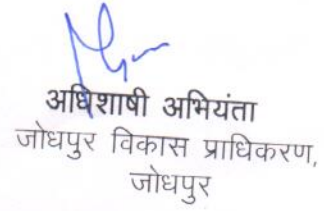 अधिशाषी अभियंता
जोधपुर विकास प्राधिकरण,
जोधपुर